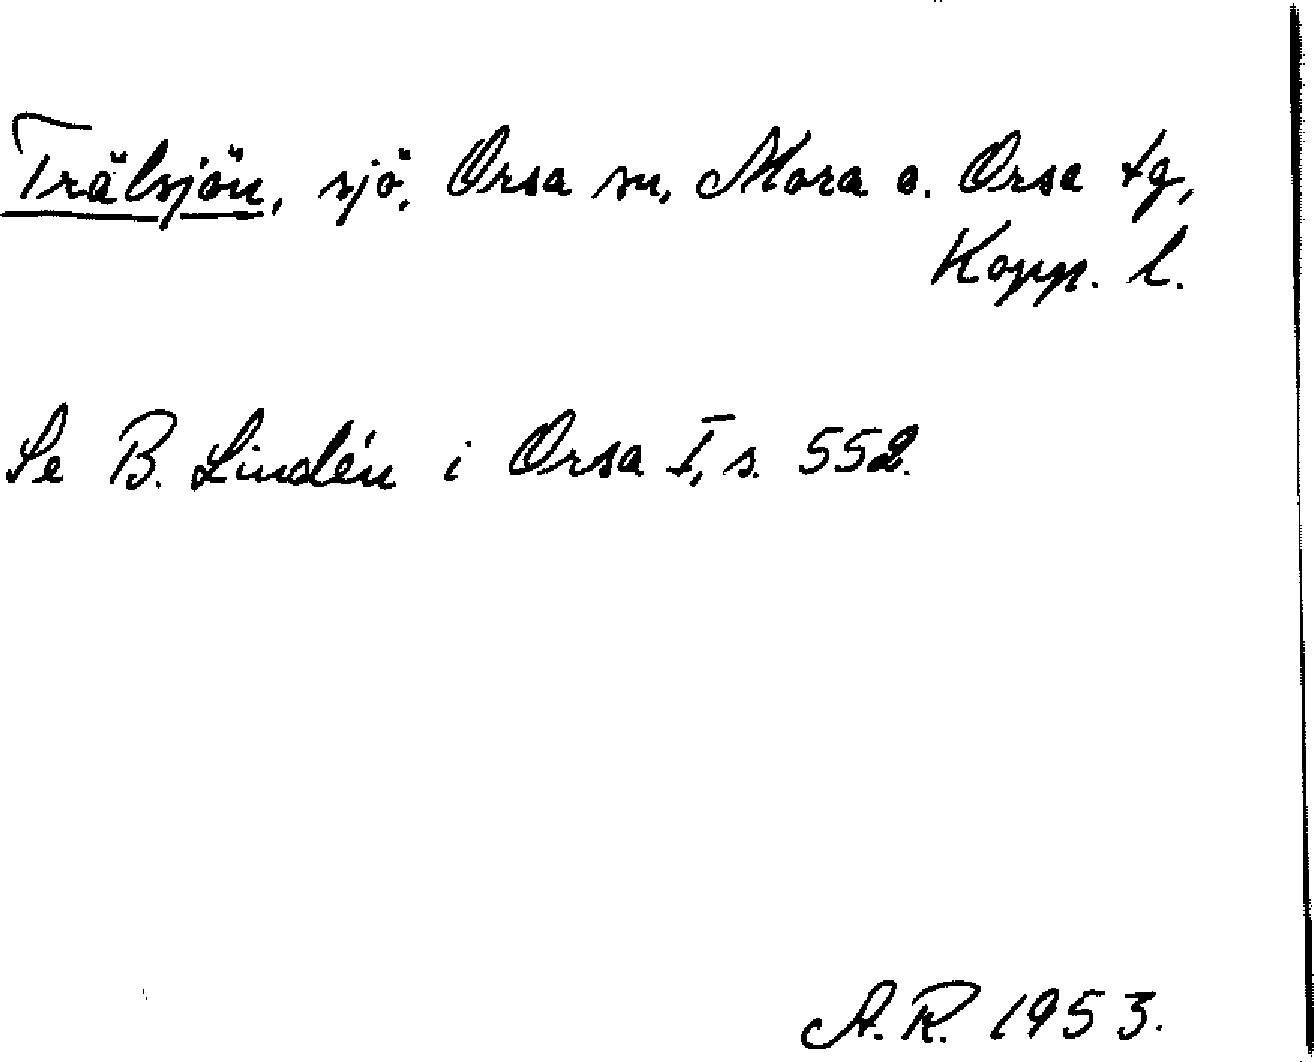 Trälsjön, sjö, Orsa sn, Mora o. Orsa tg,
Kopp. l.
Se B. Lindén i Orsa I, s. 552.
A.R. 1953.